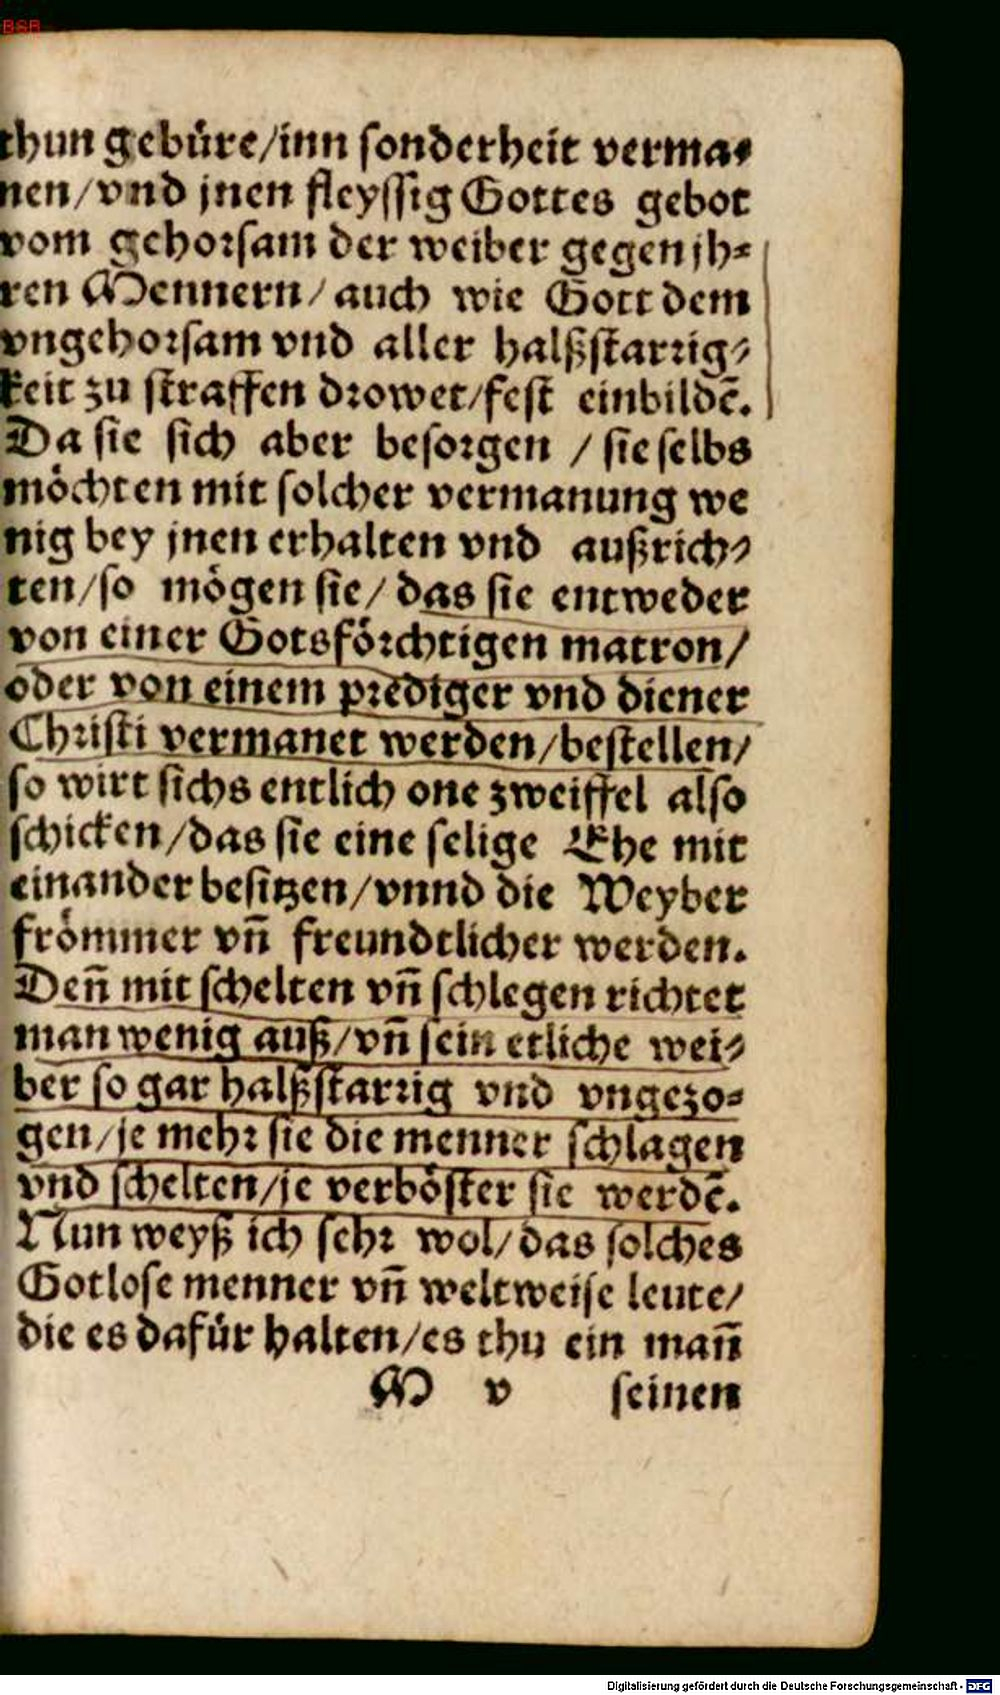 BSB
thun gebüre/inn sonderheit verma⸗
nen/vnd jnen fleyssig Gottes gebot
vom gehorsam der weiber gegen jh⸗
ren Mennern/auch wie Gott dem
vngehorsam vnd aller halßstarrig⸗
keit zu straffen drowet/fest einbildẽ.
Da sie sich aber besorgen / sie selbs
möchten mit solcher vermanung we
nig bey jnen erhalten vnd außrich⸗
ten/so mögen sie/das sie entweder
von einer Gotsförchtigen matron/
oder von einem prediger vnd diener
Christi vermanet werden/bestellen/
so wirt sichs entlich one zweiffel also
schicken/das sie eine selige Ehe mit
einander besitzen/vnnd die Weyber
frömmer vñ freundtlicher werden.
Deñ mit schelten vñ schlegen richtet
man wenig auß/vñ sein etliche wei⸗
ber so gar halßstarrig vnd vngezo⸗
gen/je mehr sie die menner schlagen
vnd schelten/je verböster sie werdẽ.
Nun weyß ich sehr wol/das solches
Gotlose menner vñ weltweise leute/
die es dafür halten/es thu ein mañ
M v seinen
Digitalisierung gefördert durch die Deutsche Forschungsgemeinschaft - DFG